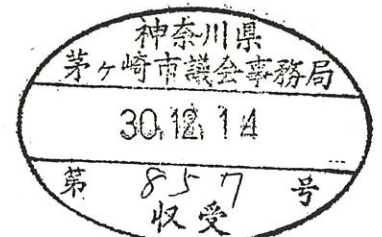 神奈川県
茅ヶ崎市議会事務局
30.12.14
第 857 号
収受